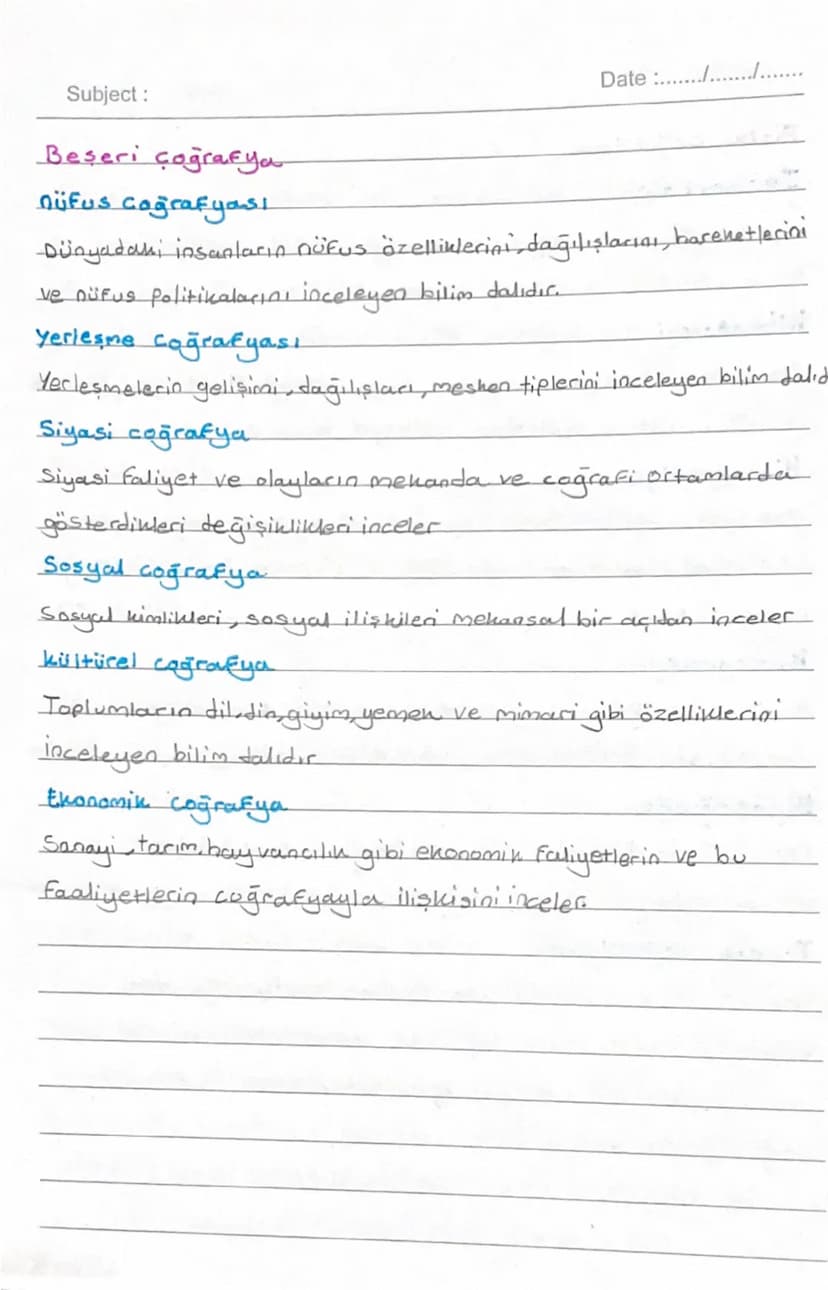 Subject :
Date :......./......./.......
Beşeri Çoğrafya
nüfus Coğrafyası
Dünyadaki insanların nüfus özelliklerini, dağılışlarını, hareketlerini
ve nüfus politikalarını inceleyen bilim dalıdır.
Yerleşme Coğrafyası
Yerleşmelerin gelişimi, dağılışları, mesken tiplerini inceleyen bilim dalıd
Siyasi coğrafya
Siyasi faliyet ve olayların mekanda ve coğrafi ortamlarda
gösterdikleri değişiklikleri inceler
Sosyal coğrafya
Sosyal kimlikleri, sosyal ilişkileri mekansal bir açıdan inceler
kültürel coğrafya
Toplumların dil, din, giyim, yemek ve mimari gibi özelliklerini
inceleyen bilim dalıdır
Ekonomik coğrafya
Sanayi, tarım, hayvancılık gibi ekonomik faliyetlerin ve bu
faaliyetlerin coğrafyayla ilişkisini inceler.